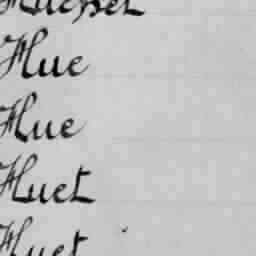 Hue
Hue
Huet
Huet